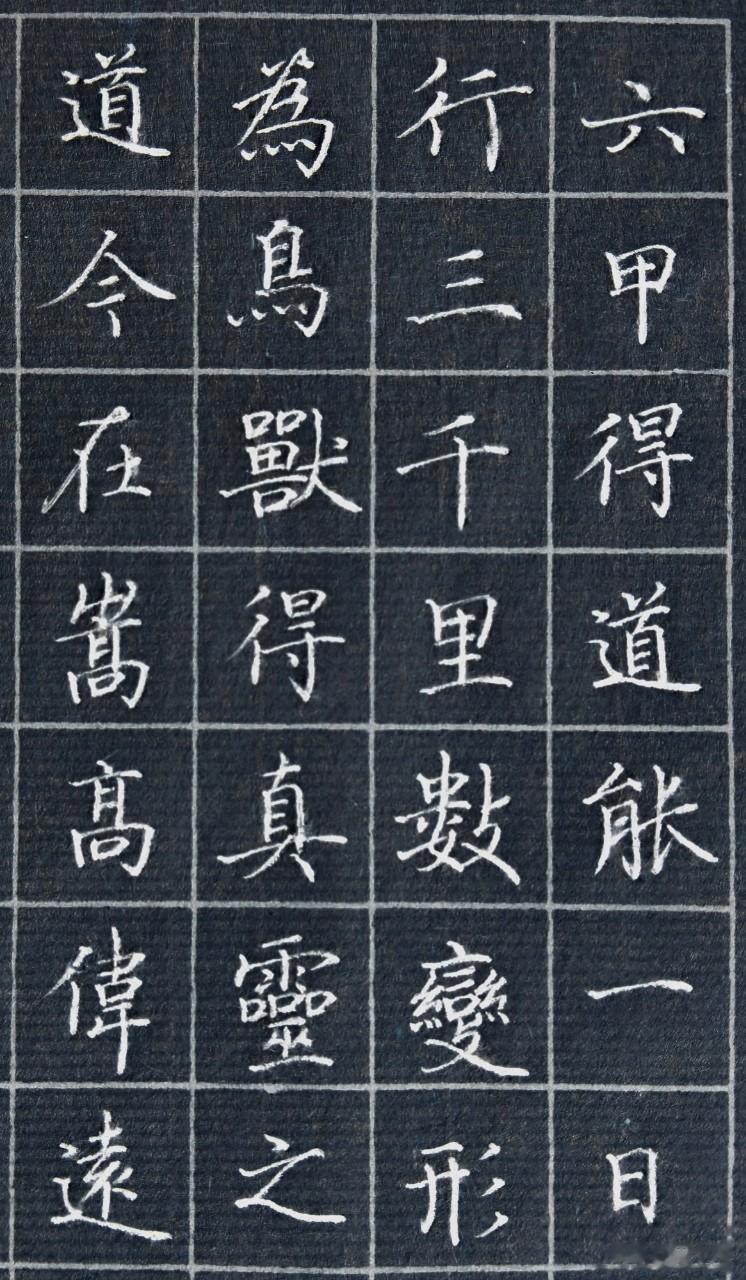 六甲得道能一日
行三千里數變形
為鳥獸得真靈之
道今在嵩高偉遠